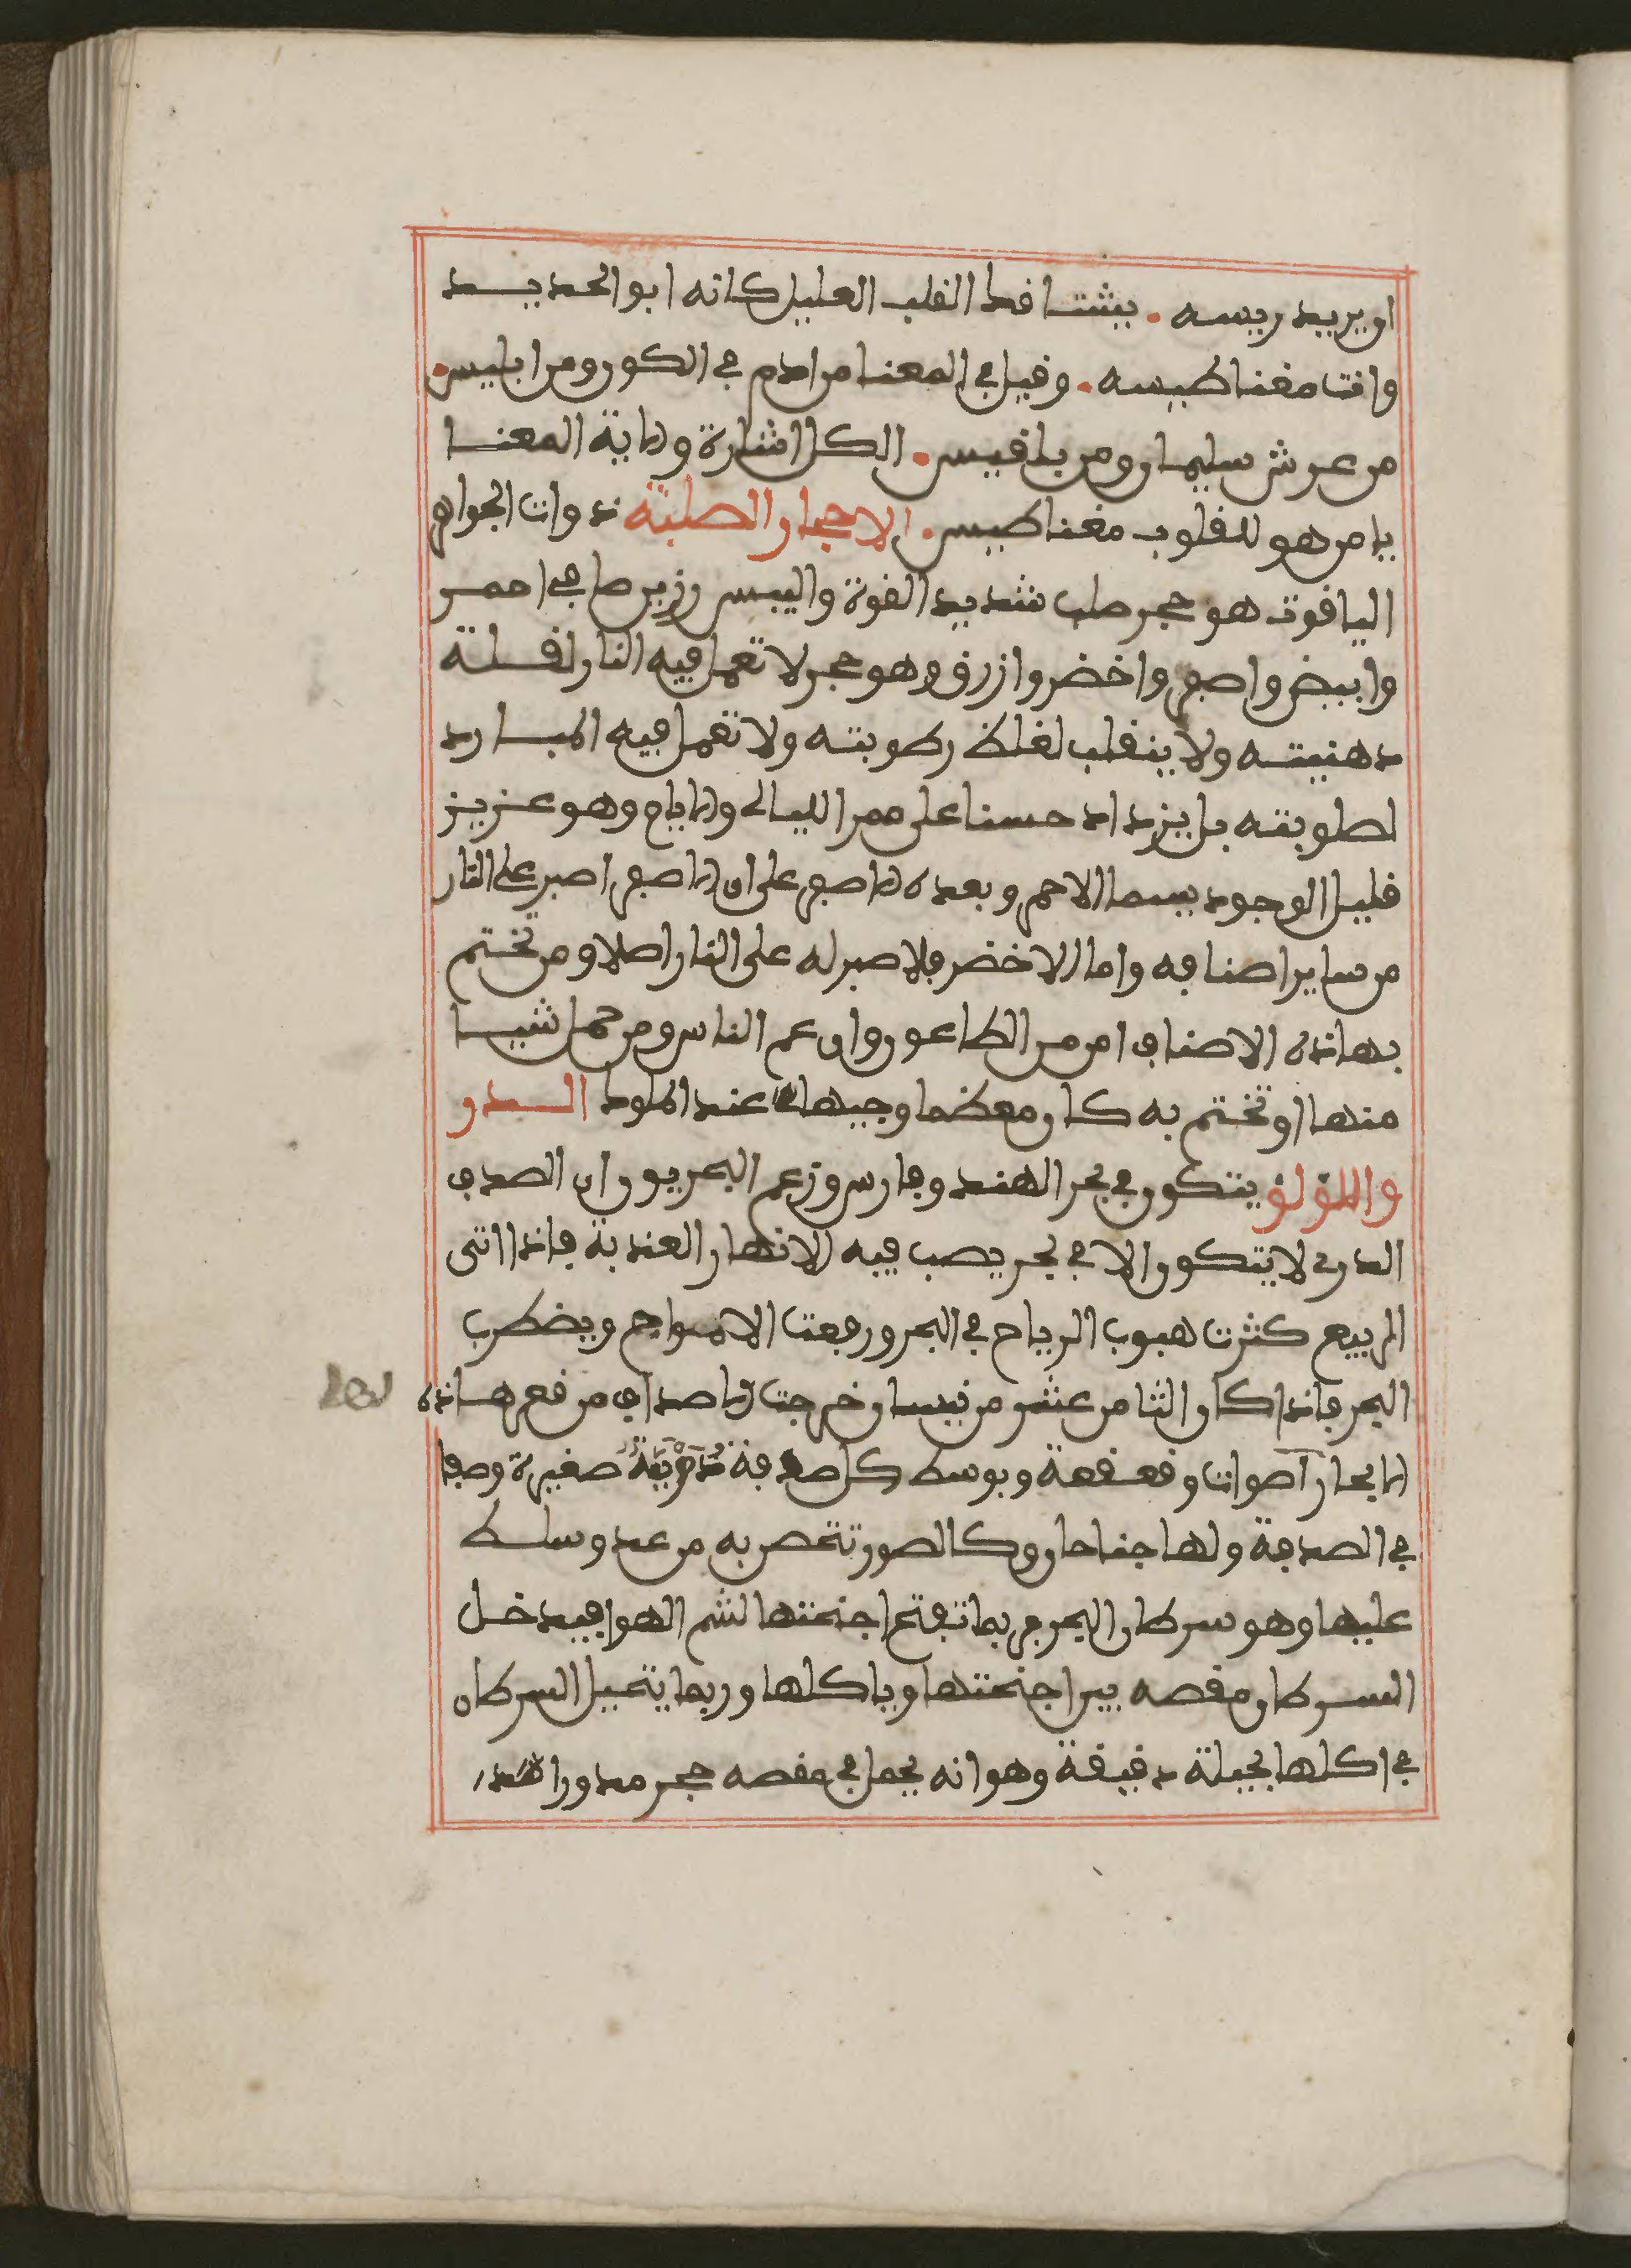 او يريد ريسه . يشتافك القلب العليل كانه ابو الحديد
وانت مغناطيسه . وقيل في المعنا من ادم في الكون ومن ابليس .
من عرش سليمان ومن بلقيس . الكل اشارة وانت المعنا
يا من هو للقلوب مغناطيس . الاحجار الصلبة ذوات الجواهر
الياقوت هو حجر صلب شديد القوة واليبس رزين صافي احمر
وابيض واصفر واخضر وازرق وهو حجر لا تعمل فيه النار لقلة
دهنيته ولا ينقلب لغلظ رطوبته ولا تعمل فيه المبارد
لصلوبته بل يزداد حسنا على ممر الليالي والايام وهو عزيز
قليل الوجود سيما الاحمر وبعده الاصفر على ان الاصفر اصبر على النار
من ساير اصنافه واما الاخضر فلا صبر له على النار اصلا ومن تختم
بهاذه الاصناف امن من الطاعون وان عم الناس ومن حمل شيا
منها او تختم به كان معظما وجيها عند الملوك الدر
واللؤلؤ يتكون في بحر الهند وفارس وزعم البحريون ان الصدف
الدري لا يتكون الا في بحر يصب فيه الانهار العذبة فاذا اتى
الربيع كثرت هبوب الرياح في البحر ورفعت الامواج ويضطرب
البحر فاذا كان الثامن عشر من نيسان خرجت الاصداف من قعر هاذه
الابحار اصوات وقعقعة وبوسط كل صدفة دويبة صغيرة وصفا
في الصدفة ولها جناحان وكالصور تتحصن به من عدو سلط
عليها وهو سرطان البحر فربما تفتح اجنحتها لشم الهوا فيدخل
السرطان مقصه بين اجنحتها وياكلها وربما يتحيل السرطان
في اكلها بحيلة دقيقة وهو انه يحمل في مقصه حجر مدورا